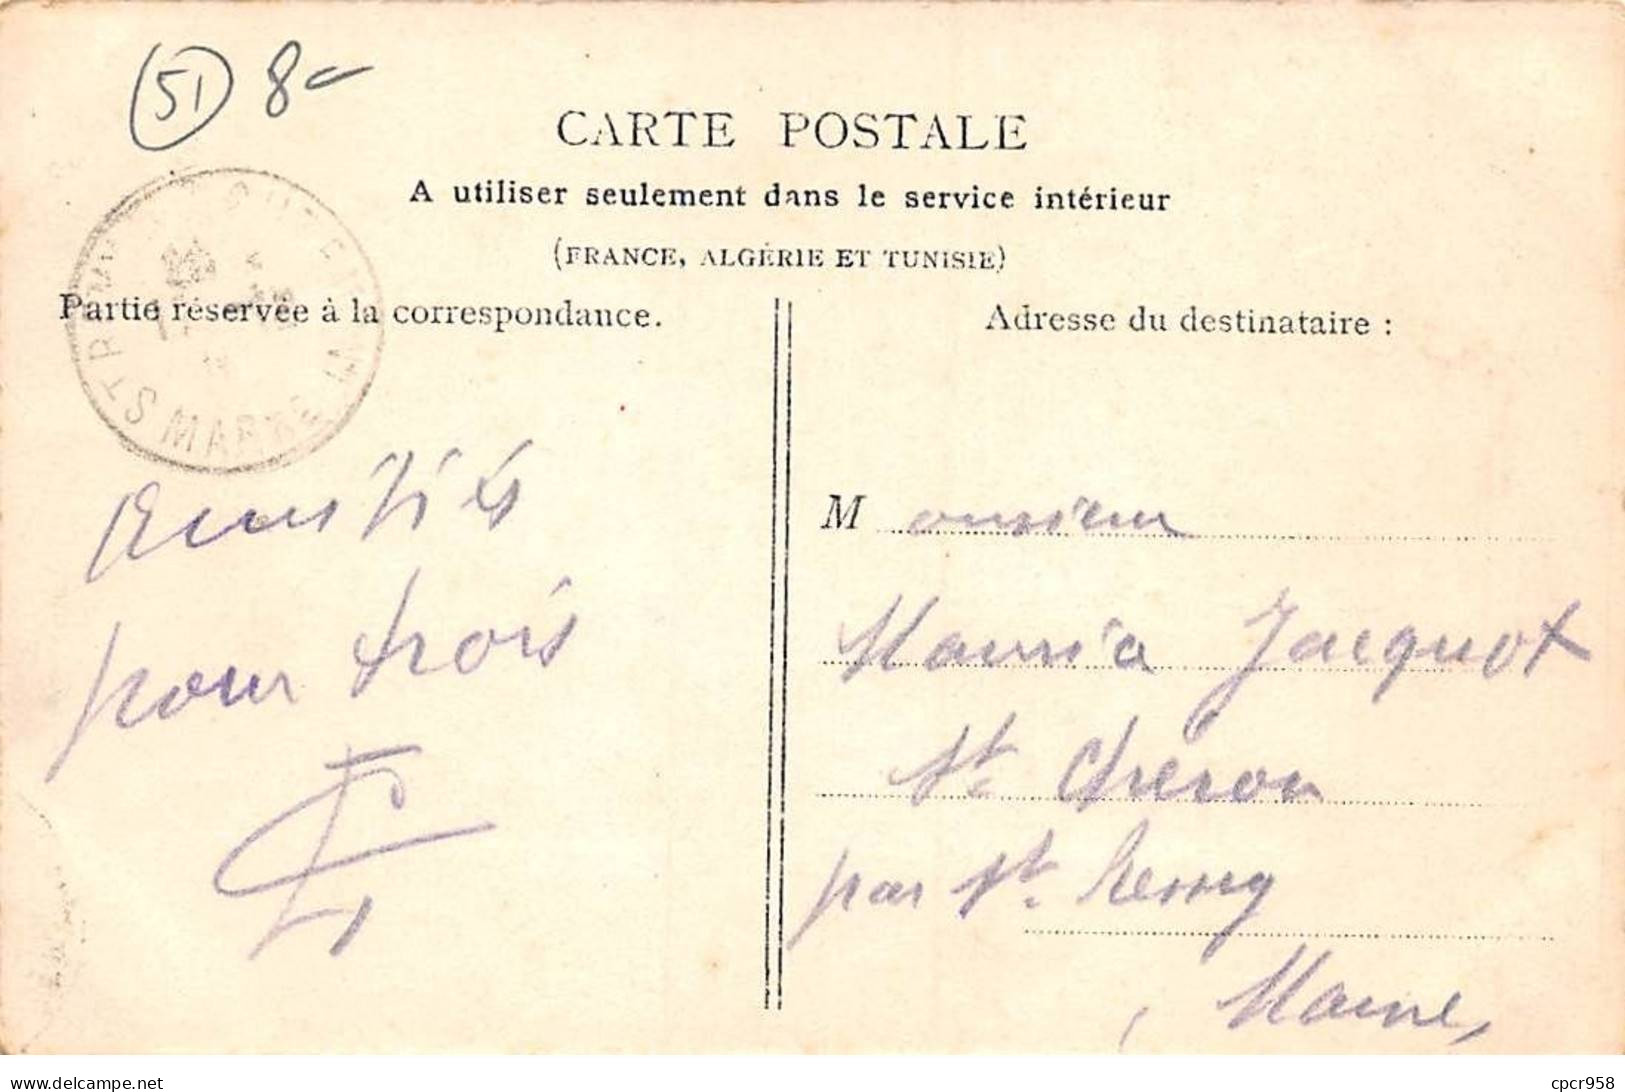 51 8-
CARTE POSTALE
A utiliser seulement dans le service intérieur
(FRANCE, ALGÉRIE ET TUNISIE)
Partie réservée à la correspondance.
Adresse du destinataire :
ST R MARNE
amitiés
pour trois
Monsieur
Jacquot
St. Chéron
par St. Remy
Marne
delcampe.net
cpcr958